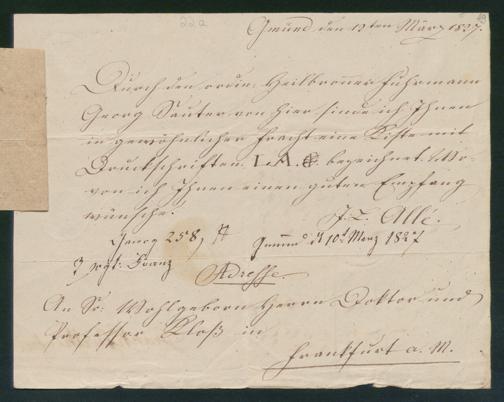 22a
Gmünd den 13ten März 1827.
Durch den ordin. Heilbronner Fuhrmann
Georg Sauter von hier sende ich Ihnen
in gewöhnlicher Fracht eine Kiste mit
Druckschriften I. A. bezeichnet. Wo-
von ich Ihnen einen guten Empfang
wünsche.
J. L. Alle.
258 ₰ Gmünd d 10t Merz 1827
Franz
Adresse.
An Sr. Wohlgeborn Herrn Doktor und
Professor Kloß in
Frankfurt a. M.